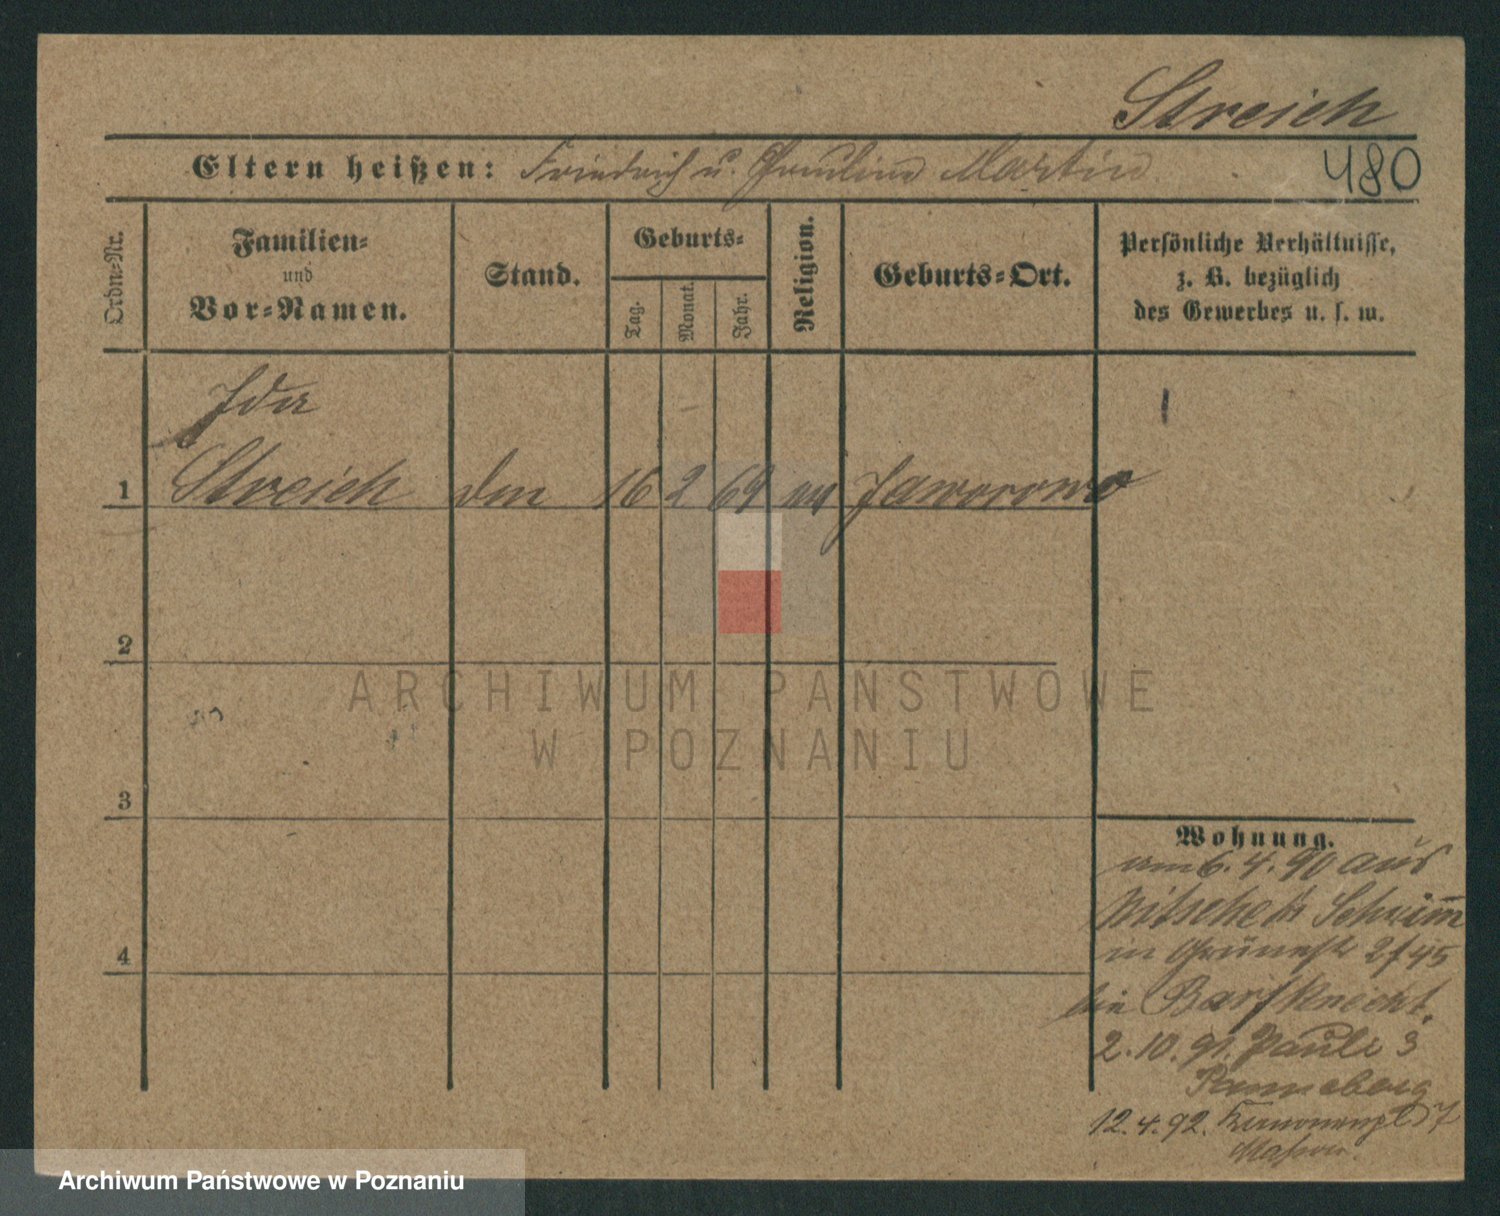 Streich
480
Eltern heißen: Friedrich u. Pauline Martin
Ordn=Nr.
Familien=
und
Vor=Namen.
Stand.
Geburts=
Tag.
Monat.
Jahr.
Religion.
Geburts=Ort.
Persönliche Verhältnisse,
z. B. bezüglich
des Gewerbes u. s. w.
Ida
1 Streich 16 2 69 Jaworowo
2
ARCHIWUM PAŃSTWOWE
W POZNANIU
3
Wohnung.
am 6. 4. 90 aus
Nitsche Schrimm
in
bei Barfknecht.
2.10.91. Pauli 3
12.4.92.
4
Archiwum Państwowe w Poznaniu